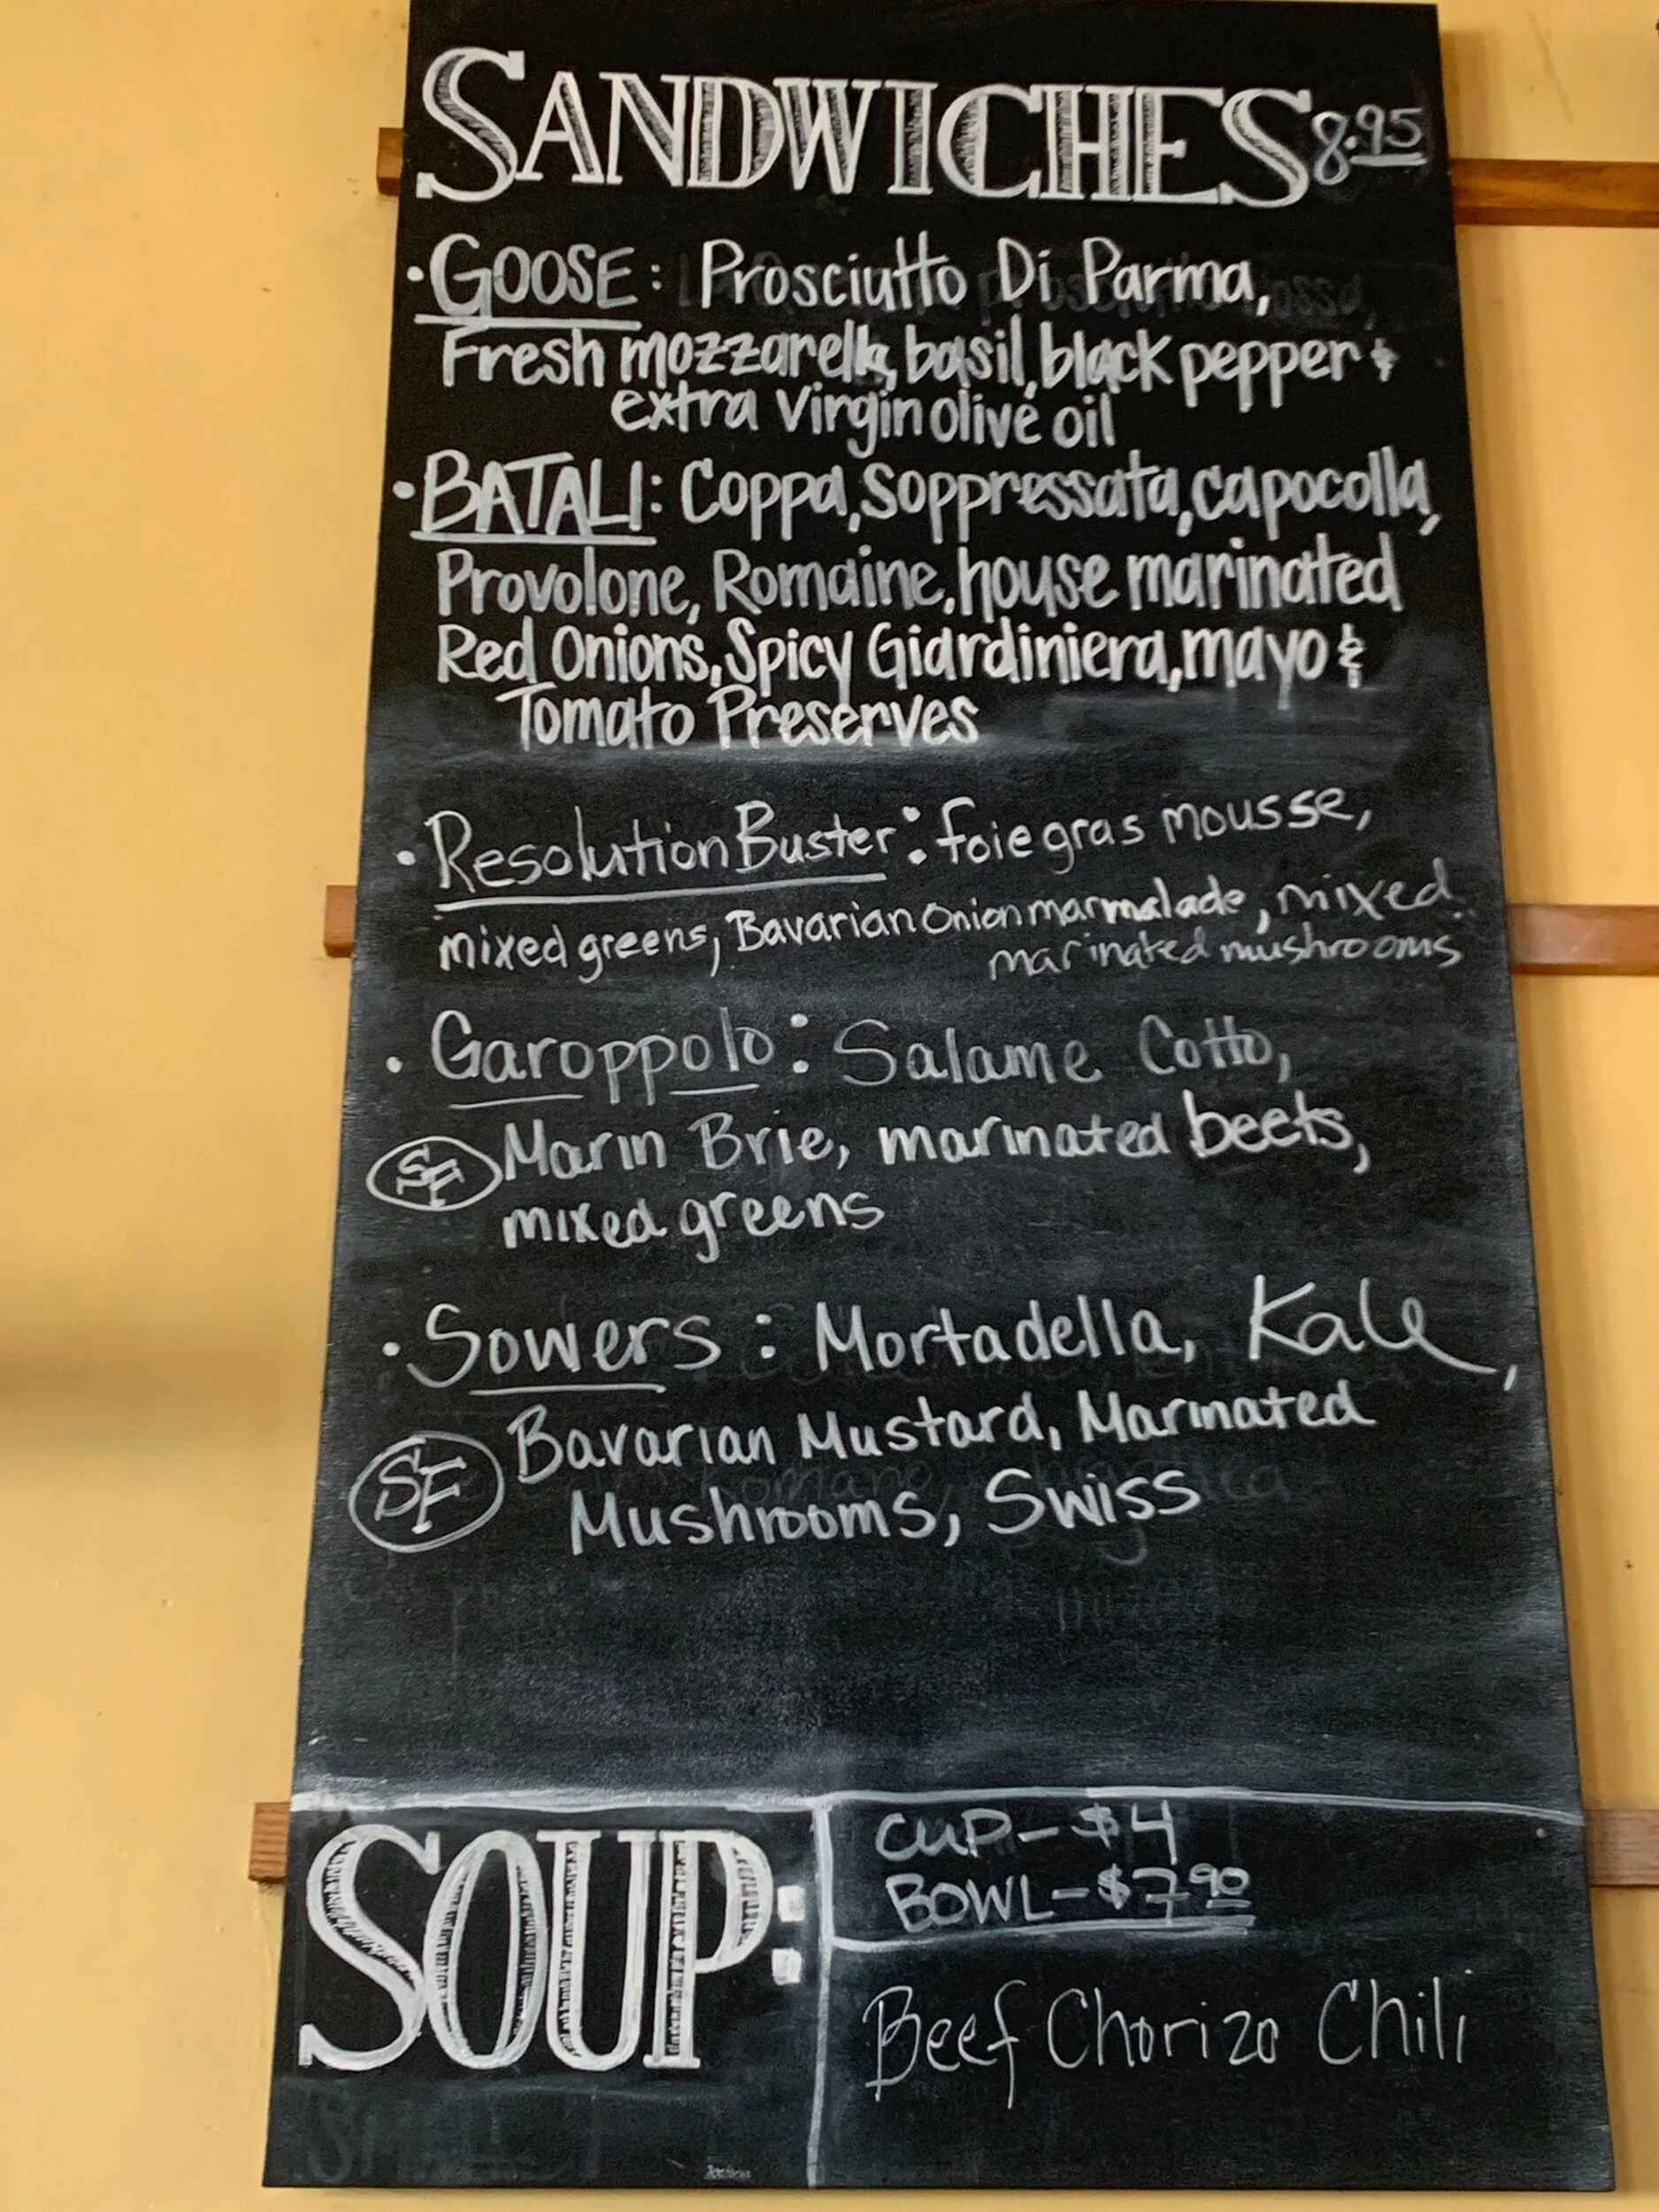 SANDWICHES 8.95
• GOOSE: Prosciutto Di Parma,
Fresh mozzarella, basil, black pepper &
extra Virgin olive oil
• BATALI: Coppa, Soppressata, capocolla,
Provolone, Romaine, house marinated
Red Onions, Spicy Giardiniera, mayo &
Tomato Preserves
• Resolution Buster: foie gras mousse,
mixed greens, Bavarian Onion marmalade, mixed
marinated mushrooms
• Garoppolo: Salame Cotto,
SF Marin Brie, marinated beets,
mixed greens
• Sowers: Mortadella, Kale,
SF Bavarian Mustard, Marinated
Mushrooms, Swiss
SOUP:
CUP - $4
BOWL - $7.90
Beef Chorizo Chili